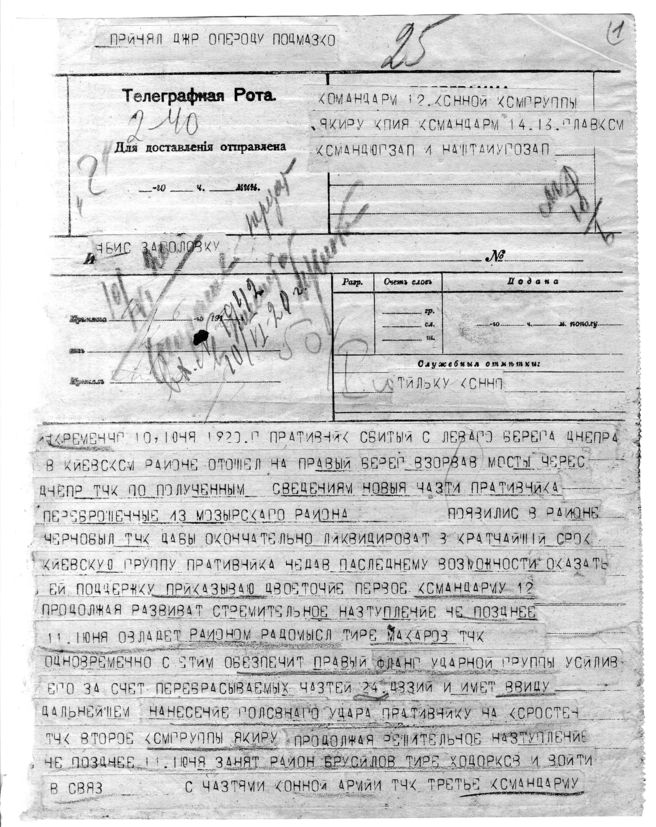 ПРИНЯЛ ДЖР ОПЕРОДУ ПОДМАЗКО
25
1
Телеграфная Рота.
2-40
Для доставленiя отправлена
"2"
-го ч. мин.
КОМАНДАРМ 12. КСННОЙ КСМГРУППЫ
ЯКИРУ КПИЯ КСМАНДАРМ 14.13. ГЛАВКСМ
КСМАНДЮГЗАП И НАШТАЮГОЗАП
№
10/VI 20 г.
Разр.
Счетъ словъ
Подана
гр.
сл.
-го ч. м. пополу
Служебныя отмѣтки:
ТЙЛЬКУ КСННП
КРЕМЕНЧГ 10. ЮНЯ 1920. Г ПРАТИВНИК СБИТЫЙ С ЛЕВАГО БЕРЕГА ДНЕПРА
В КИЕВСКСМ РАИОНЕ ОТОШЕЛ НА ПРАВЫЙ БЕРЕГ ВЗОРВАВ МОСТЫ ЧЕРЕС
ДНЕПР ТЧК ПО ПОЛУЧЕННЫМ СВЕДЕНИЯМ НОВЫЯ ЧАЗТИ ПРАТИВЧИКА
ПЕРЕБРОШЕННЫЕ ИЗ МОЗЫРСКАГО РАИОНА ПОЯВИЛИС В РАИОНЕ
ЧЕРНОБЫЛ ТЧК ДАБЫ ОКОНЧАТЕЛЬНО ЛИКВИДИРОВАТ В КРАТЧАЙШИЙ СРОК
КИЕВСКУЮ ГРУППУ ПРАТИВЧИКА НЕДАВ ПАСЛЕДНЕМУ ВОЗМОЖНОСТИ ОКАЗАТЬ
ЕЙ ПОДДЕРЖКУ ПРИКАЗЫВАЮ ДВОЕТОЧИЕ ПЕРВОЕ КСМАНДАРМУ 12
ПРОДОЛЖАЯ РАЗВИВАТ СТРЕМИТЕЛЬНОЕ НАЗТУПЛЕНИЕ НЕ ПОЗДНЕЕ
11. ЮНЯ ОВЛАДЕТ РАИОНОМ РАДОМЫСЛ ТИРЕ МАКАРОВ ТЧК
ОДНОВРЕМЕННО С ЕТИМ ОБЕЗПЕЧИТ ПРАВЫЙ ФЛАНГ УДАРНОЙ ГРУППЫ УСИЛИВ
ЕГО ЗА СЧЕТ ПЕРЕБРАСЫВАЕМЫХ ЧАЗТЕЙ 24. ДЗЗИЙ И ИМЕТ ВВИДУ
ДАЛЬНЕЙШЕМ НАНЕСЕНИЕ ГОЛОВНАГО УДАРА ПРАТИВЧИКУ НА КСРОСТЕН
ТЧК ВТОРОЕ КСМГРУППЫ ЯКИРУ ПРОДОЛЖАЯ РЕШИТЕЛЬНОЕ НАЗТУПЛЕНИЕ
НЕ ПОЗДНЕЕ 11. ЮНЯ ЗАНЯТ РАИОН БРУСИЛОВ ТИРЕ ХОДОРКСВ И ВОЙТИ
В СВЯЗ С ЧАЗТЯМИ КОННОЙ АРМИИ ТЧК ТРЕТЬЕ КСМАНДАРМУ